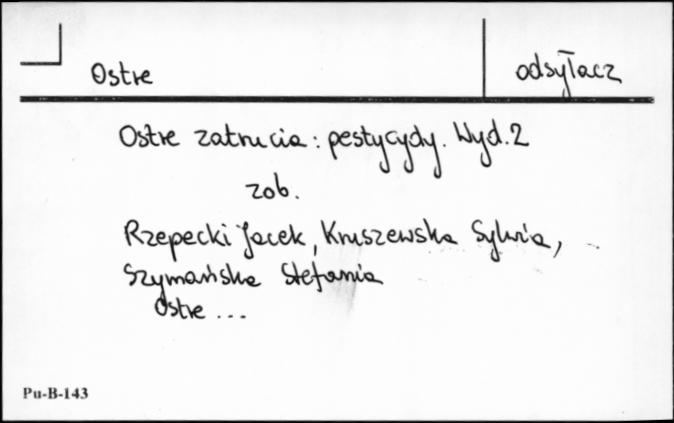 Ostre
odsyłacz
Ostre zatrucia : pestycydy. Wyd. 2
zob.
Rzepecki Jacek, Kruszewska Sylwia,
Szymańska Stefania
Ostre ...
Pu-B-143